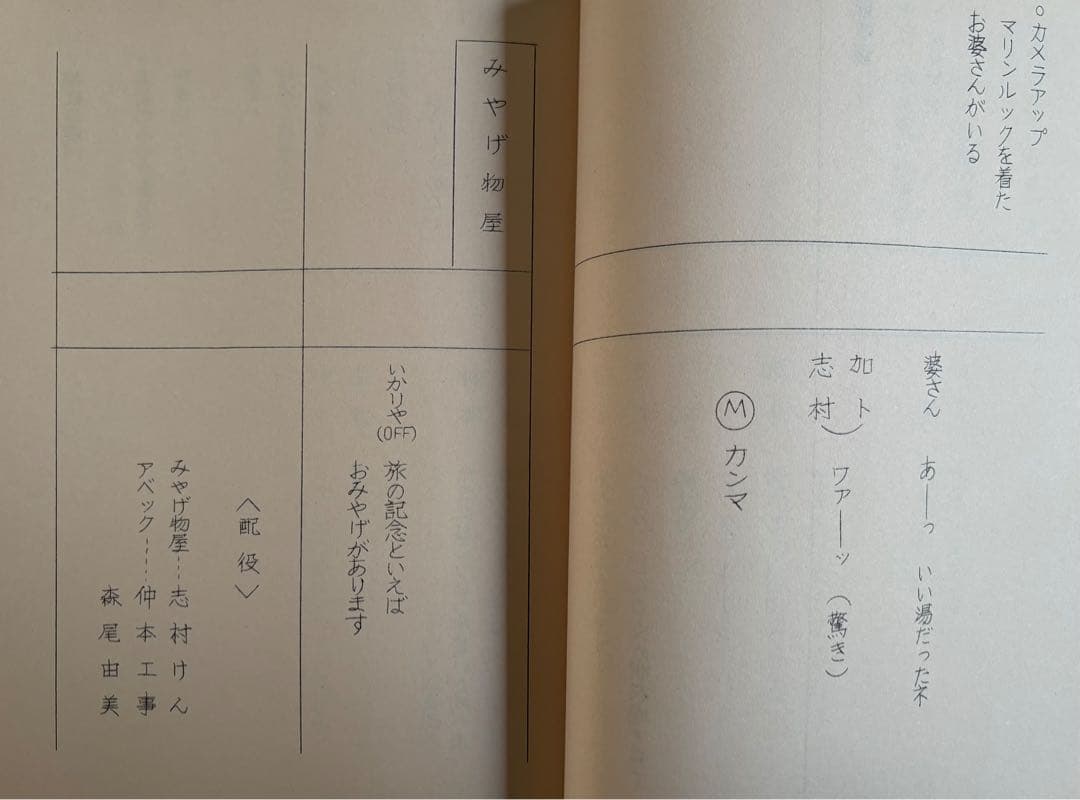 ○カメラアップ
マリンルックを着た
お婆さんがいる
婆さん　あ――っ　いい湯だったネ
加ト
志村）ワァーッ（驚き）
Ⓜカンマ
みやげ物屋
いかりや(OFF)　旅の記念といえば
おみやげがあります
〈配役〉
みやげ物屋…志村けん
アベック……仲本工事
森尾由美